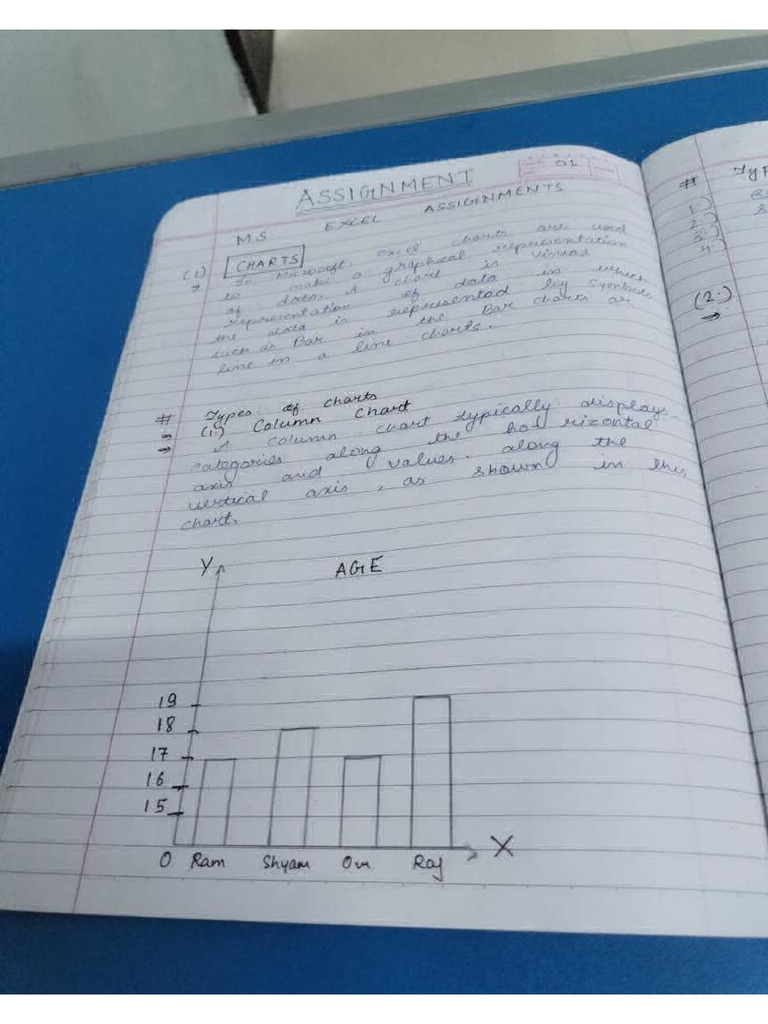 01
ASSIGNMENT
M.S EXCEL ASSIGNMENTS
(1) CHARTS
→ In Microsoft excel charts are used
to make a graphical representation
of data. A chart is visual
representation of data in which
the data is represented by symbols
such as Bar in the Bar charts or
line in a line charts.
# Types of charts
→ (1.) Column Chart
→ A column chart typically display
categories along the horizontal
axis and values along the
vertical axis, as shown in this
chart.
Y AGE
19
18
17
16
15
O Ram Shyam Om Raj X
#
1.)
2.)
3.)
4.)
(2.)
→